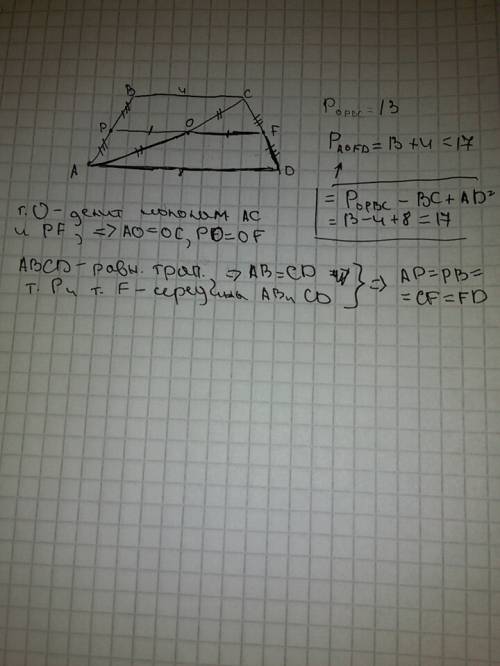 B 4 C
P O F
A 8 D
P_OPBC = 13
P_AOFD = 13 + 4 = 17
= P_OPBC − BC + AD =
= 13 − 4 + 8 = 17
т. О - делит пополам AC
и PF, => AO=OC, PO=OF
ABCD - равн. трап., => AB=CD
т. P и т. F - середины AB и CD
} => AP=PB=
=CF=FD